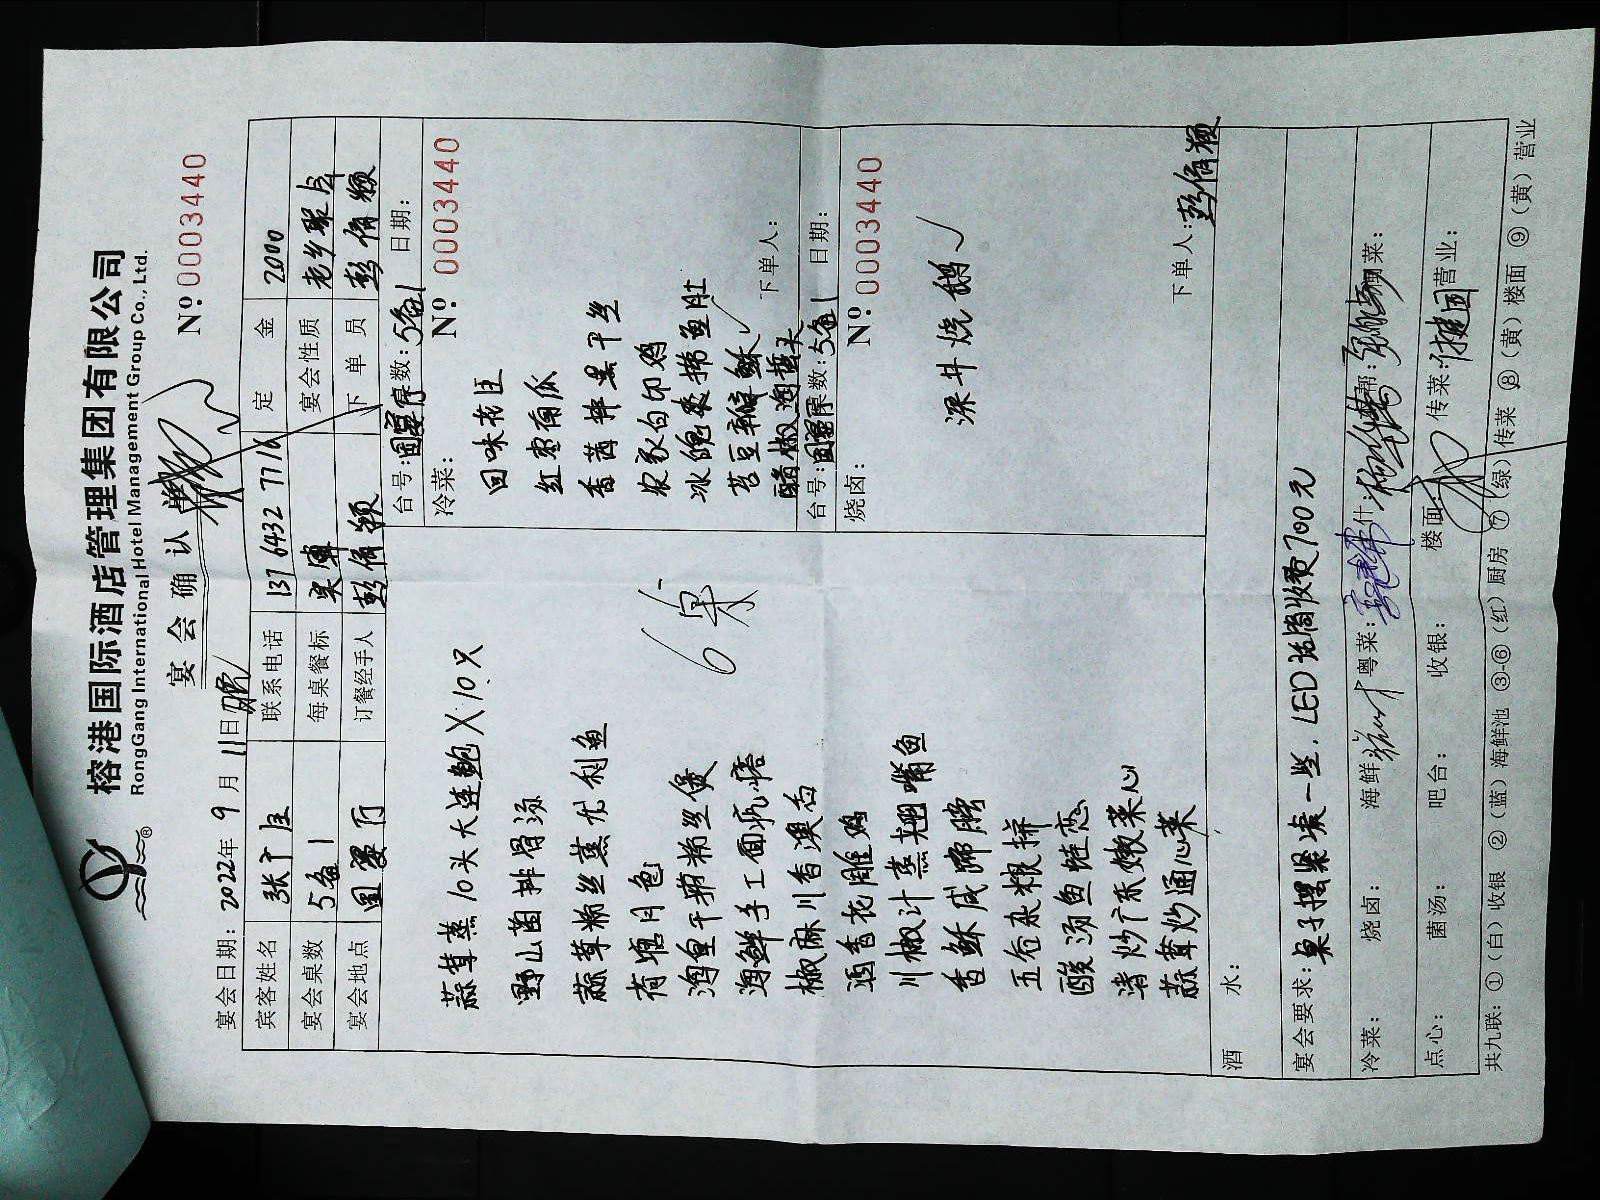 榕港国际酒店管理集团有限公司
RongGang International Hotel Management Group Co., Ltd.
宴会确认
№ 0003440
宴会日期: 2022年 9月 11日
宾客姓名 张 联系电话 137 6432 7716 定金 2000
宴会桌数 5备1 每桌餐标 宴会性质 老乡聚会
宴会地点 国宴厅 订餐经手人 彭倩颖 下单员 彭倩颖
蒜茸蒸10头大连鲍X10只
野山菌排骨汤
蒜草粉丝蒸龙利鱼
荷塘月色
海皇干捞粉丝煲
海鲜手工面疙瘩
椒麻川香澳白
酒香花雕鸡
川椒汁蒸翘嘴鱼
香酥咸蹄膀
五谷杂粮拼
酸汤鱼娃恋
渚炒广东嫩菜心
蒜茸炒通心菜
6桌
台号: 国宴厅 桌数: 5备1 日期:
冷菜: № 0003440
回味
红枣南瓜
香茜拌黑干丝
农家白切鸡
鱼肚
苔豆瓣酥
椒海蜇头
下单人:
台号: 国宴厅 桌数: 5备1 日期:
烧卤: № 0003440
深井烧鹅
下单人: 彭倩颖
酒水:
宴会要求: 桌子摆紧凑一些, LED 话筒收费700元
冷菜: 烧卤: 海鲜 粤菜: 什: 帮: 菜:
点心: 菌汤: 吧台: 收银: 楼面: 传菜: 营业:
共九联: ①(白)收银 ②(蓝)海鲜池 ③-⑥(红)厨房 ⑦(绿)传菜 ⑧(黄)楼面 ⑨(黄)营业